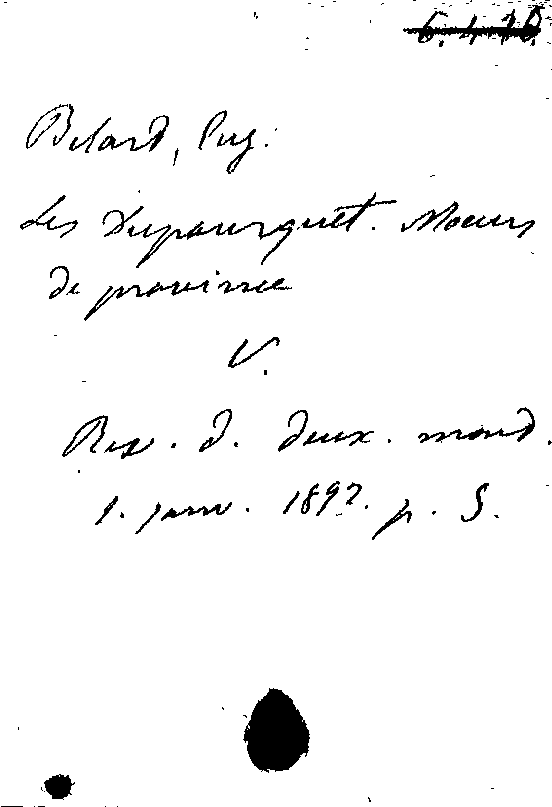 Belard, Eug.
Les Dupourquet. Moeurs
de province
V.
Rev. d. deux. mond.
1. janv. 1892. p. 5.